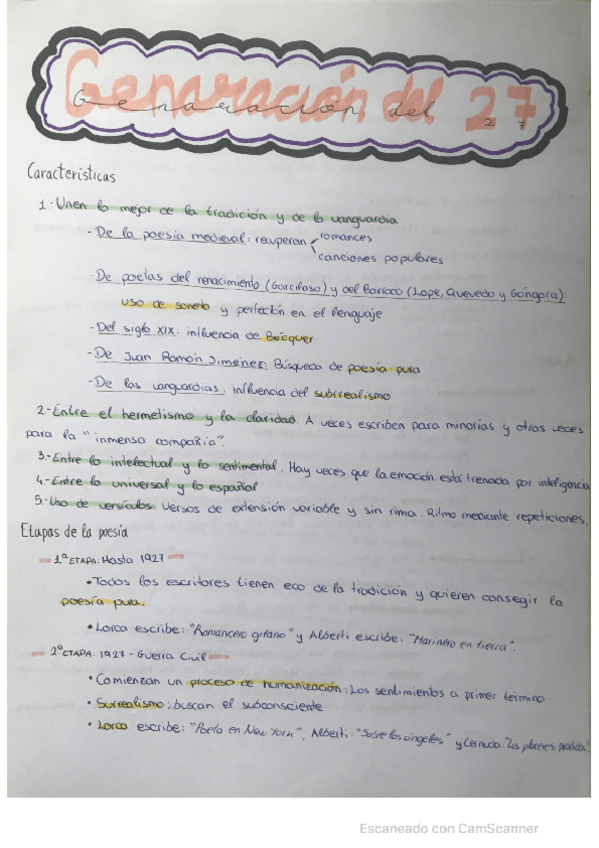 Genaración del 27
Genaración del 27
Características
1.- Unen lo mejor de la tradición y de la vanguardia
- De la poesía medieval: recuperan romances
canciones populares
- De poetas del renacimiento (Garcilaso) y del Barroco (Lope, Quevedo y Góngora):
uso de soneto y perfección en el lenguaje
- Del siglo XIX: influencia de Bécquer
- De Juan Ramón Jiménez: Búsqueda de poesía pura
- De las vanguardias: influencia del subrrealismo
2.- Entre el hermetismo y la claridad. A veces escriben para minorías y otras veces
para la "inmensa compañía".
3.- Entre lo intelectual y lo sentimental. Hay veces que la emoción está frenada por inteligencia
4.- Entre lo universal y lo español
5.- Uso de versículos: Versos de extensión variable y sin rima. Ritmo mediante repeticiones.
Etapas de la poesía
1ª ETAPA: Hasta 1927
• Todos los escritores tienen eco de la tradición y quieren consegir la
poesía pura.
• Lorca escribe: "Romancero gitano" y Alberti escribe: "Marinero en tierra".
2ª ETAPA: 1927 - Guerra Civil
• Comienzan un proceso de humanización: Los sentimientos a primer termino
• Surrealismo: buscan el subconsciente
• Lorca escribe: "Poeta en New York", Alberti: "Sobre los ángeles" y Cernuda: "Los placeres prohibidos".
Escaneado con CamScanner